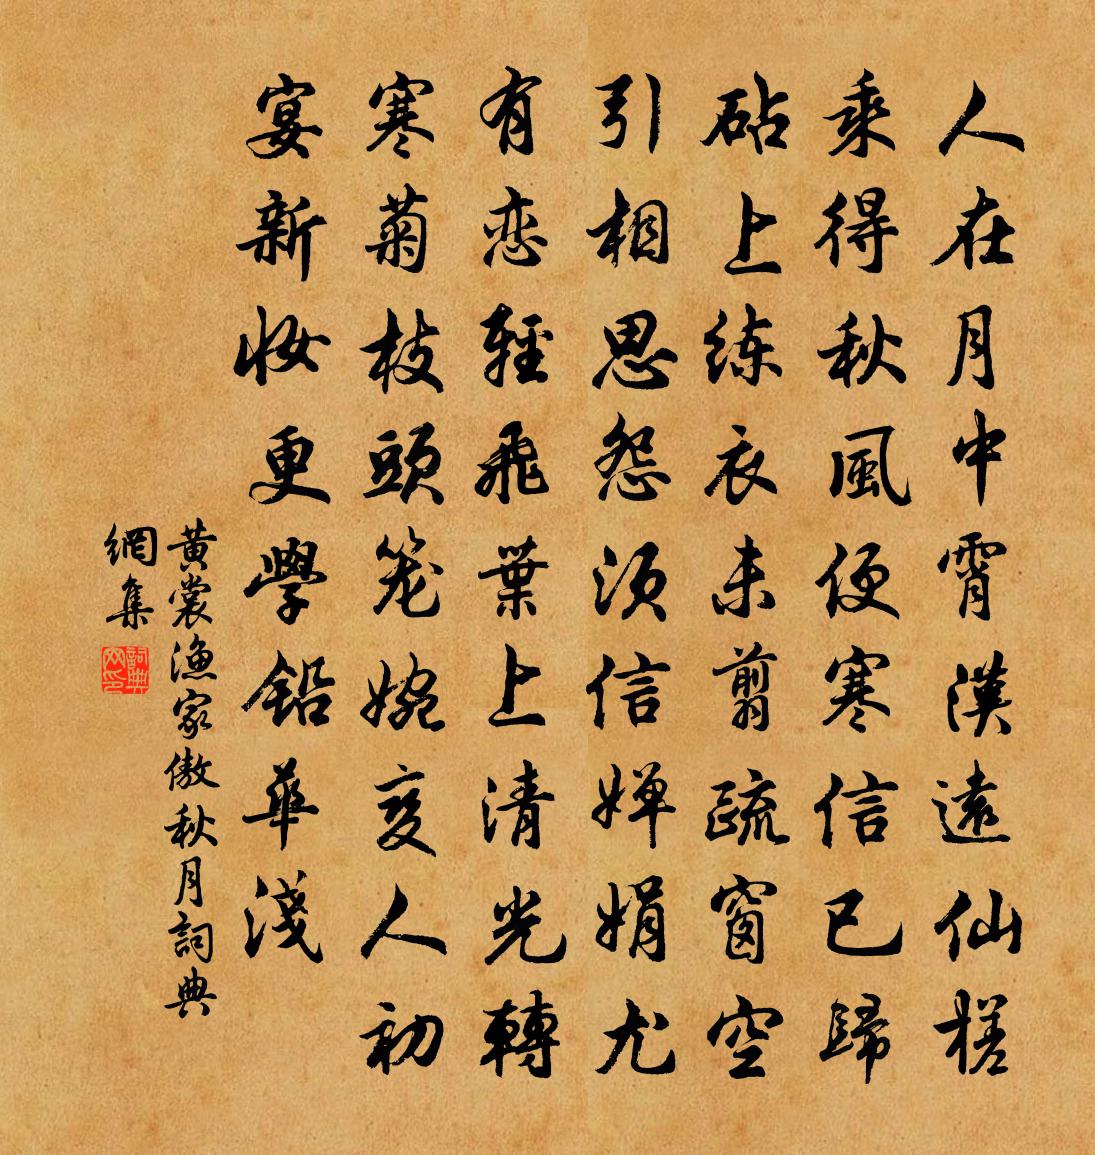 人在月中霄漢遠仙槎
乘得秋風便寒信已歸
砧上练衣未翦疏窗空
引相思怨須信嬋娟尤
有恋輕飛葉上清光轉
寒菊枝頭笼婉变人初
宴新妆更學鉛華淺
黃裳渔家傲秋月詞典
網集
詞典网印